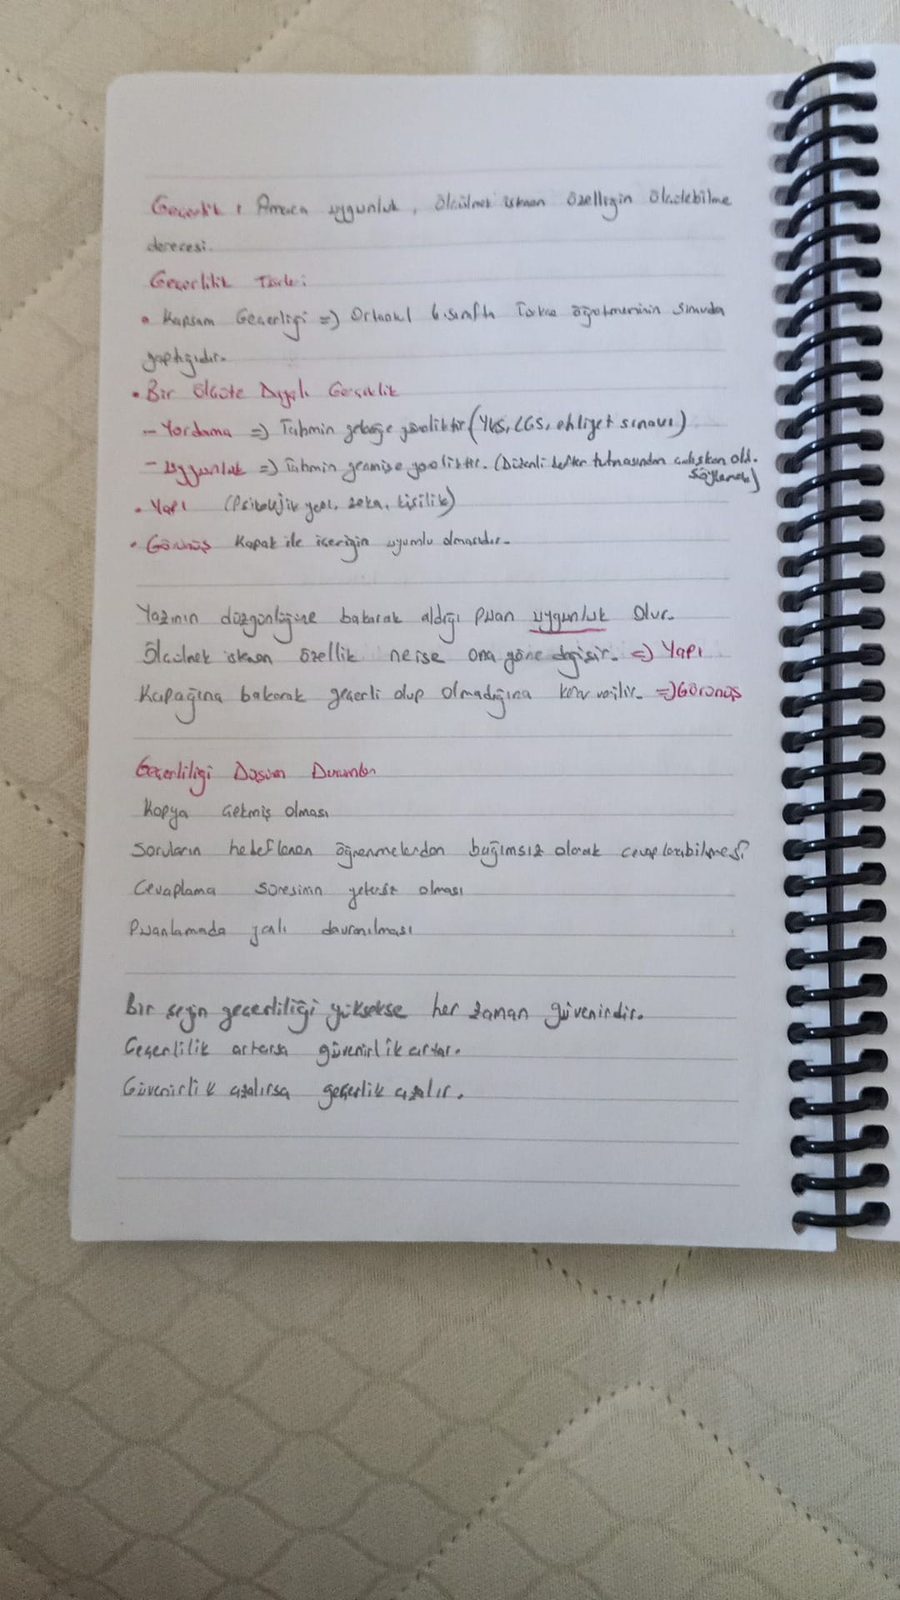 Geçerlik : Amaca uygunluk, ölçülmek istenen özelliğin ölçülebilme
derecesi.
Geçerlilik Türleri:
• Kapsam Geçerliği => Ortaokul 6.sınıfta Türkçe öğretmeninin sınavda
yaptığıdır.
• Bir Ölçüte Dayalı Geçerlik
- Yordama => Tahmin geleceğe yöneliktir (YKS, LGS, ehliyet sınavı)
- Uygunluk => Tahmin geçmişe yöneliktir. (Düzenli defter tutmasından çalışkan old.
söylemek)
• Yapı (Psikolojik yapı, zeka, kişilik)
• Görünüş Kapak ile içeriğin uyumlu olmasıdır.
Yazının düzgünlüğüne bakarak aldığı puan uygunluk olur.
Ölçülmek istenen özellik neise ona göre değişir. => Yapı
Kapağına bakarak geçerli olup olmadığına karar verilir. => Görünüş
Geçerliliği Düşüren Durumlar
Kopya çekmiş olması
Soruların hedeflenen öğrenmelerden bağımsız olarak cevaplanabilmesi
Cevaplama süresinin yetersiz olması
Puanlamada yanlı davranılması
Bir şeyin geçerliliği yüksekse her zaman güvenirdir.
Geçerlilik artarsa güvenirlik artar.
Güvenirlik azalırsa geçerlik azalır.